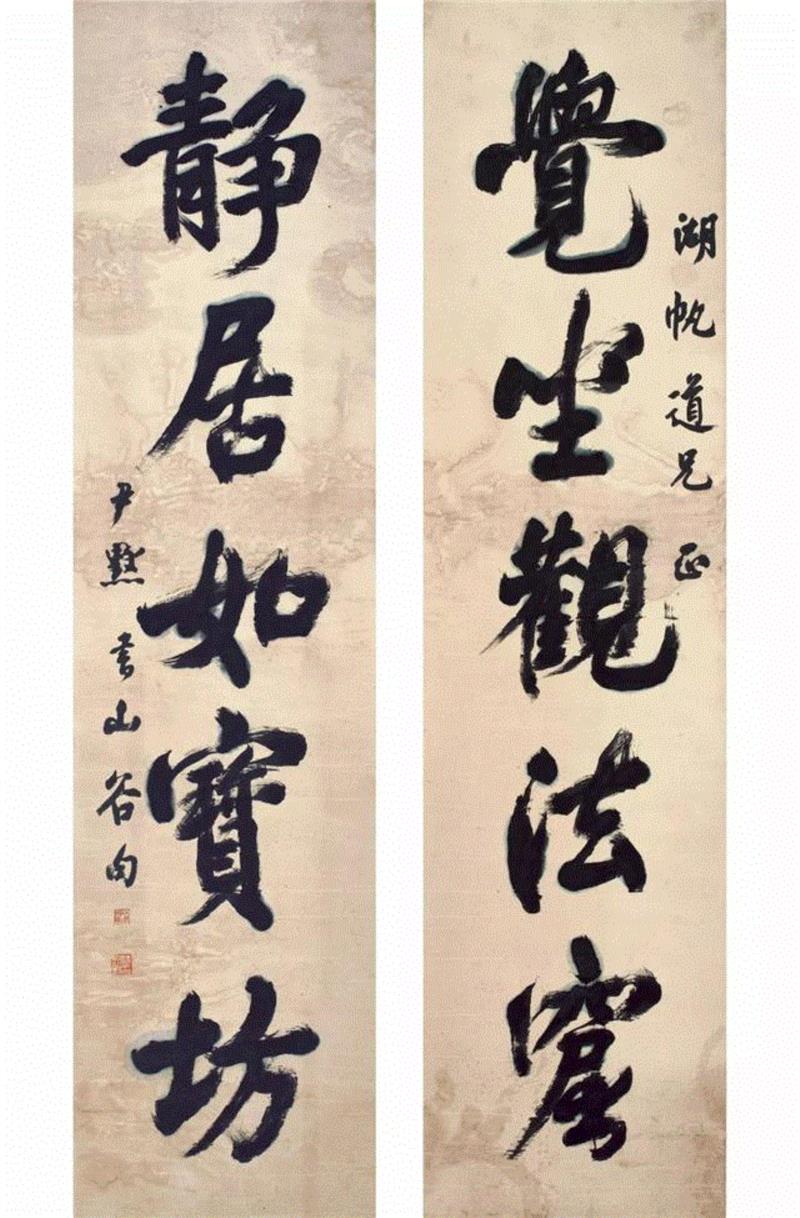 湖帆道兄正
覺坐觀法窟
靜居如寶坊
尹默書山谷句